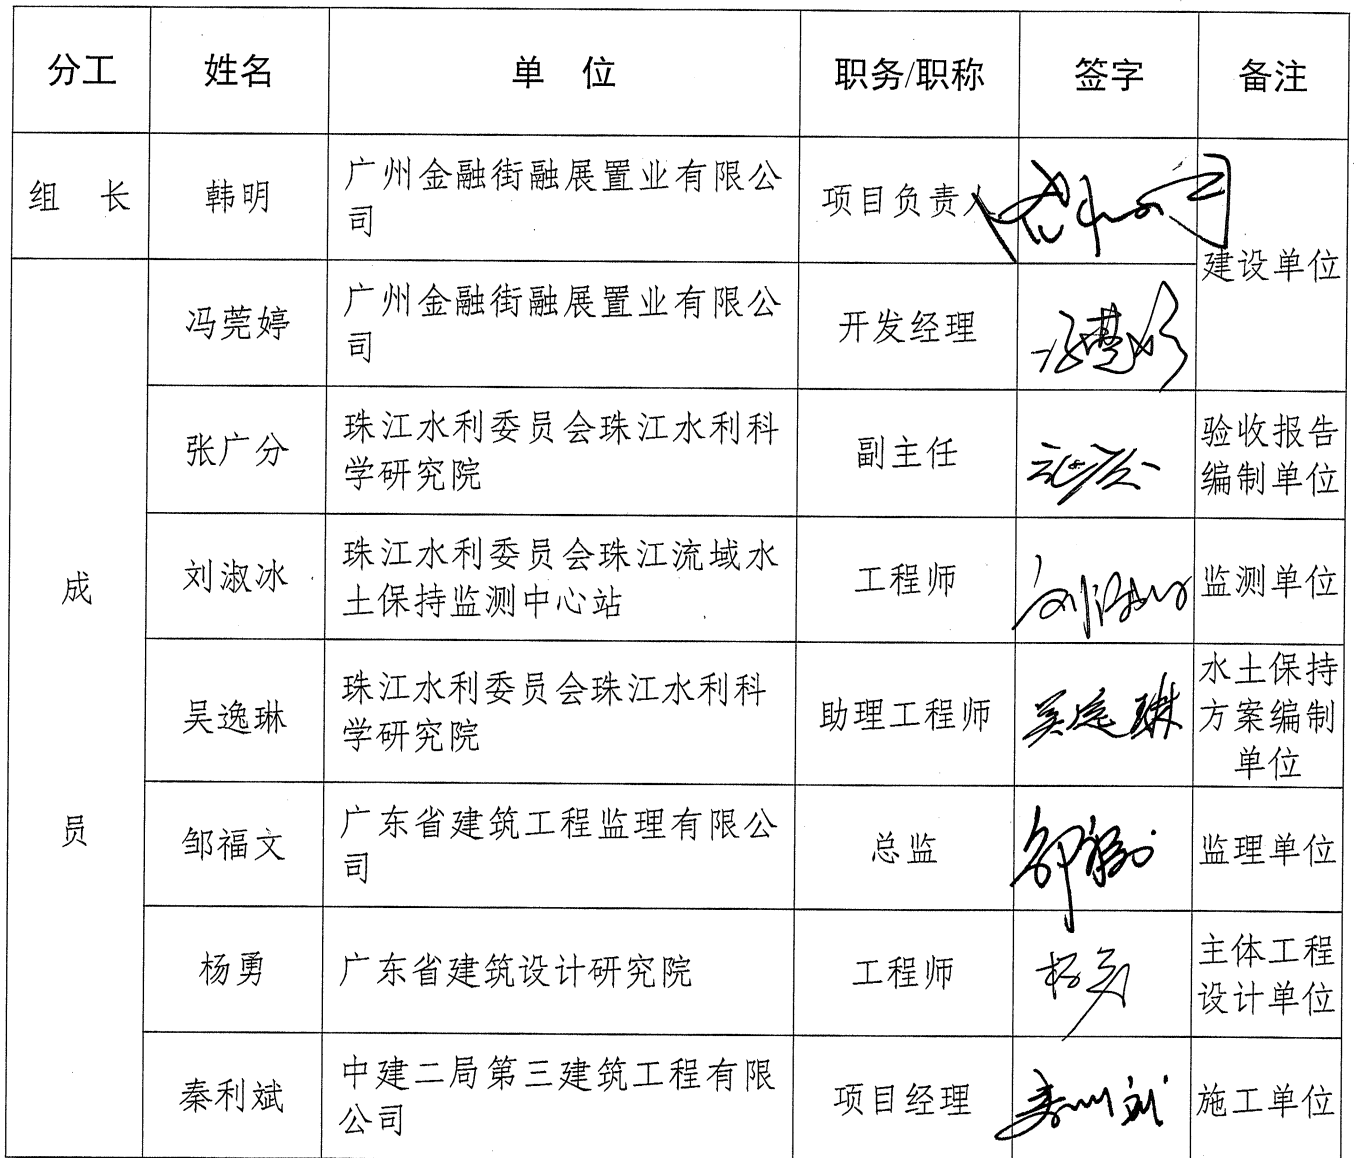 分工 姓名 单 位 职务/职称 签字 备注
组 长 韩明 广州金融街融展置业有限公
司 项目负责人 建设单位
成
员
冯莞婷 广州金融街融展置业有限公
司 开发经理
张广分 珠江水利委员会珠江水利科
学研究院 副主任 张广分 验收报告
编制单位
刘淑冰 珠江水利委员会珠江流域水
土保持监测中心站 工程师 刘淑冰 监测单位
吴逸琳 珠江水利委员会珠江水利科
学研究院 助理工程师 吴逸琳 水土保持
方案编制
单位
邹福文 广东省建筑工程监理有限公
司 总监 监理单位
杨勇 广东省建筑设计研究院 工程师 杨勇 主体工程
设计单位
秦利斌 中建二局第三建筑工程有限
公司 项目经理 施工单位